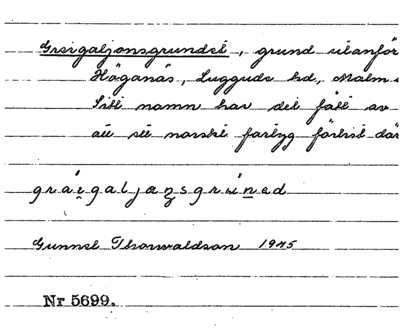 Greigaljonsgrundet, grund utanför
Höganäs, Luggude hd, Malm
Sitt namn har det fått av
att ett norskt fartyg förlist där
Gunnel Thorvaldson 1945
Nr 5699.